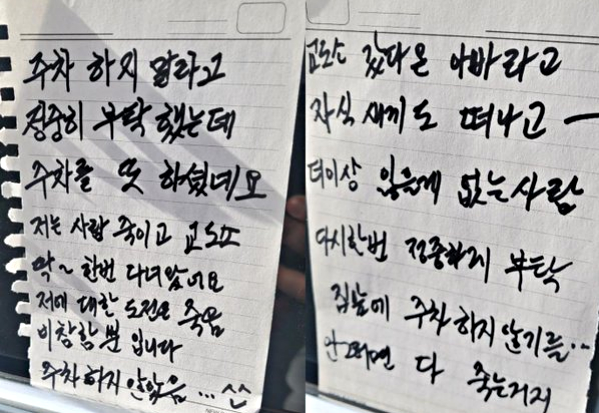 주차 하지 말라고
정중히 부탁 했는데
주차를 또 하셨네요
저는 사람 죽이고 교도소
막~ 한번 다녀왔어요
저에 대한 도전은 죽음
비참할 뿐 입니다
주차하지 않았음 ... ^^
교도소 갔다온 아빠라고
자식 새끼도 떠나고 —
더이상 잃을게 없는 사람
다시한번 정중하게 부탁
집앞에 주차 하지 않기를..
안그러면 다 죽는거지